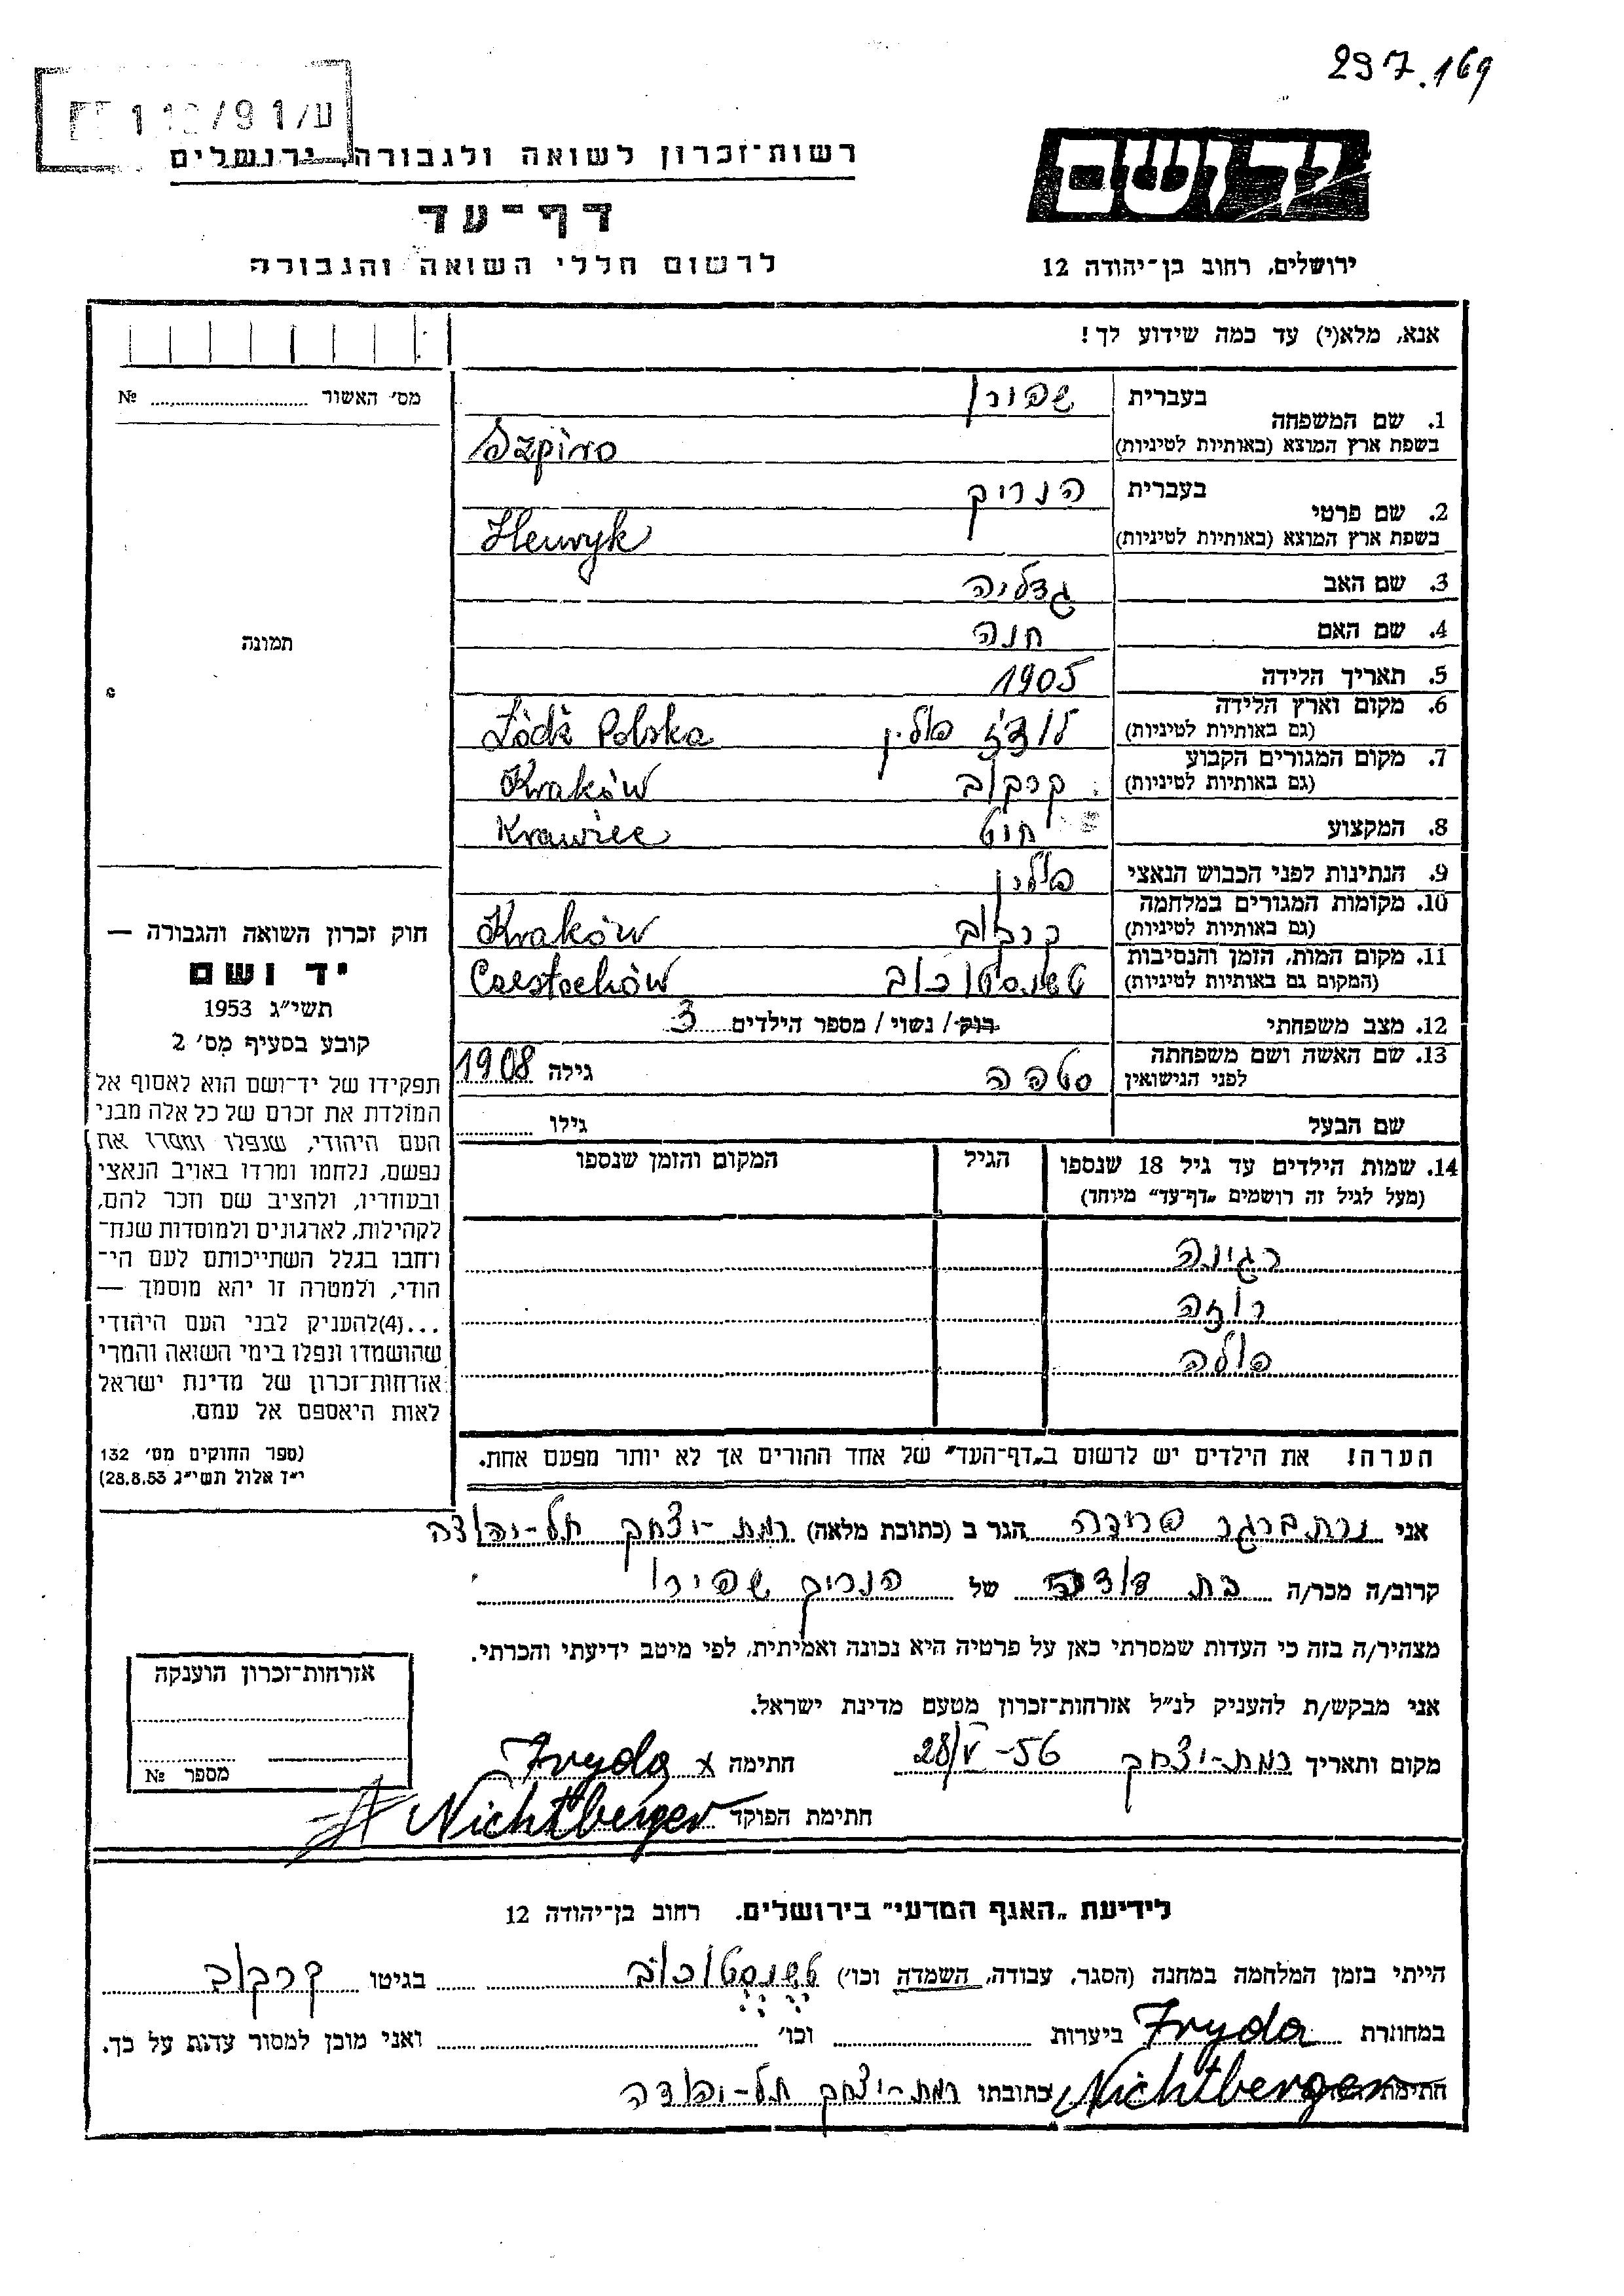 297.169
רשות־זכרון לשואה ולגבורה, ירושלים
דף־עד
לרשום חללי השואה והגבורה
יד ושם
ירושלים, רחוב בן־יהודה 12
אנא, מלא(י) עד כמה שידוע לך!
מס' האשור № 
1. שם המשפחה
בעברית
בשפת ארץ המוצא (באותיות לטיניות) Szpiro
2. שם פרטי
בעברית הנריק
בשפת ארץ המוצא (באותיות לטיניות) Henryk
3. שם האב גדליה
4. שם האם חנה
5. תאריך הלידה 1905
6. מקום וארץ הלידה (גם באותיות לטיניות) לודז פולין Łódź Polska
7. מקום המגורים הקבוע (גם באותיות לטיניות) קרקוב Kraków
8. המקצוע Krawiec
9. הנתינות לפני הכבוש הנאצי פולין
10. מקומות המגורים במלחמה (גם באותיות לטיניות) קרקוב Kraków
11. מקום המות, הזמן והנסיבות (המקום גם באותיות לטיניות) Czestochów
12. מצב משפחתי רוק / נשוי / מספר הילדים 3
13. שם האשה ושם משפחתה לפני הנישואין סטפה גילה 1908
שם הבעל גילו
14. שמות הילדים עד גיל 18 שנספו
(מעל לגיל זה רושמים „דף־עד" מיוחד)
הגיל
המקום והזמן שנספו
רגינה
רוזה
פולה
הערה! את הילדים יש לרשום ב„דף־העד" של אחד ההורים אך לא יותר מפעם אחת.
תמונה
חוק זכרון השואה והגבורה —
יד ושם
תשי״ג 1953
קובע בסעיף מס' 2
תפקידו של יד־ושם הוא לאסוף אל
המולדת את זכרם של כל אלה מבני
העם היהודי, שנפלו ומסרו את
נפשם, נלחמו ומרדו באויב הנאצי
ובעוזריו, ולהציב שם וזכר להם,
לקהילות, לארגונים ולמוסדות שנח־
רחבו בגלל השתייכותם לעם הי־
הודי, ולמטרה זו יהא מוסמך —
...(4)להעניק לבני העם היהודי
שהושמדו ונפלו בימי השואה והמרי
אזרחות־זכרון של מדינת ישראל
לאות היאספם אל עמם.
(ספר החוקים מס' 132
י״ד אלול תשי״ג 28.8.53)
אני פרידה הגר ב (כתובת מלאה) רמת-יצחק תל-יהודה
קרוב/ה מכר/ה בת דודה של הנריק שפירו
מצהיר/ה בזה כי העדות שמסרתי כאן על פרטיה היא נכונה ואמיתית, לפי מיטב ידיעתי והכרתי.
אני מבקש/ת להעניק לנ״ל אזרחות־זכרון מטעם מדינת ישראל.
מקום ותאריך רמת-יצחק 28/V-56 חתימה x Fryda
חתימת הפוקד Nichtberger
אזרחות־זכרון הוענקה
מספר №
לידיעת „האגף המדעי" בירושלים. רחוב בן־יהודה 12
הייתי בזמן המלחמה במחנה (הסגר, עבודה, השמדה וכו') טשנסטוכוב בגיטו קרקוב
במחתרת Fryda ביערות וכו' ואני מוכן למסור עדות על כך.
חתימת Nichtberger כתובתו רמת-יצחק תל-יהודה